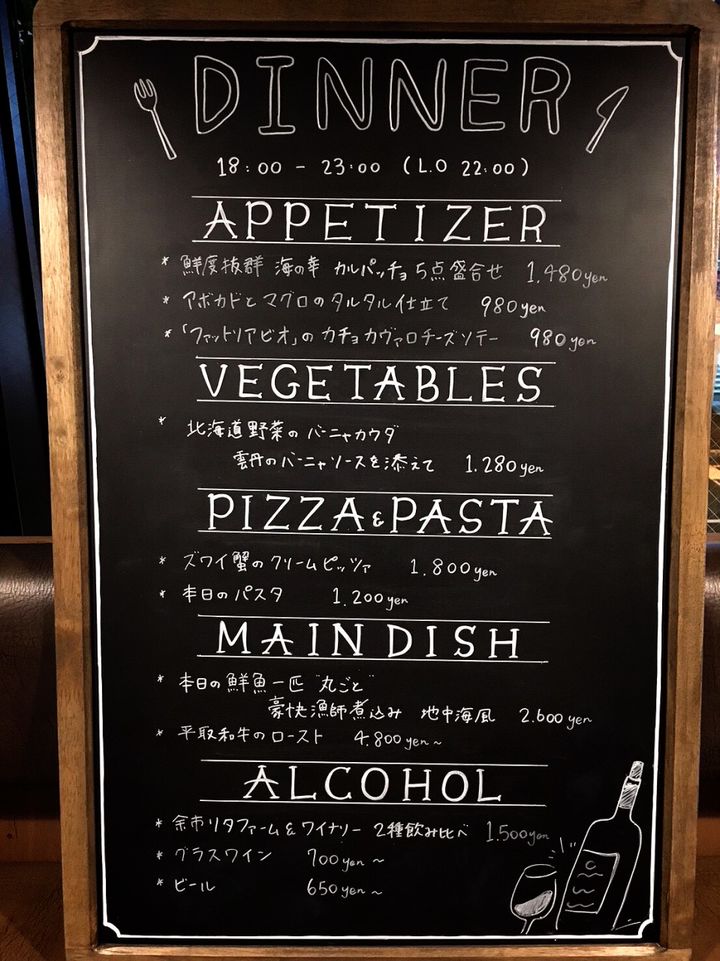 DINNER
18:00 - 23:00 (L.O 22:00)
APPETIZER
* 鮮度抜群 海の幸 カルパッチョ 5点盛合せ 1,480yen
* アボカドとマグロのタルタル仕立て 980yen
* 「ファットリアビオ」の カチョカヴァロチーズソテー 980yen
VEGETABLES
* 北海道野菜の バーニャカウダ
雲丹のバーニャソースを添えて 1.280yen
PIZZA & PASTA
* ズワイ蟹のクリームピッツァ 1.800yen
* 本日のパスタ 1.200yen
MAIN DISH
* 本日の鮮魚一匹 "丸ごと"
豪快漁師煮込み 地中海風 2.600yen
* 平取和牛のロースト 4.800yen~
ALCOHOL
* 余市リタファーム&ワイナリー 2種飲み比べ 1.500yen
* グラスワイン 700yen~
* ビール 650yen~